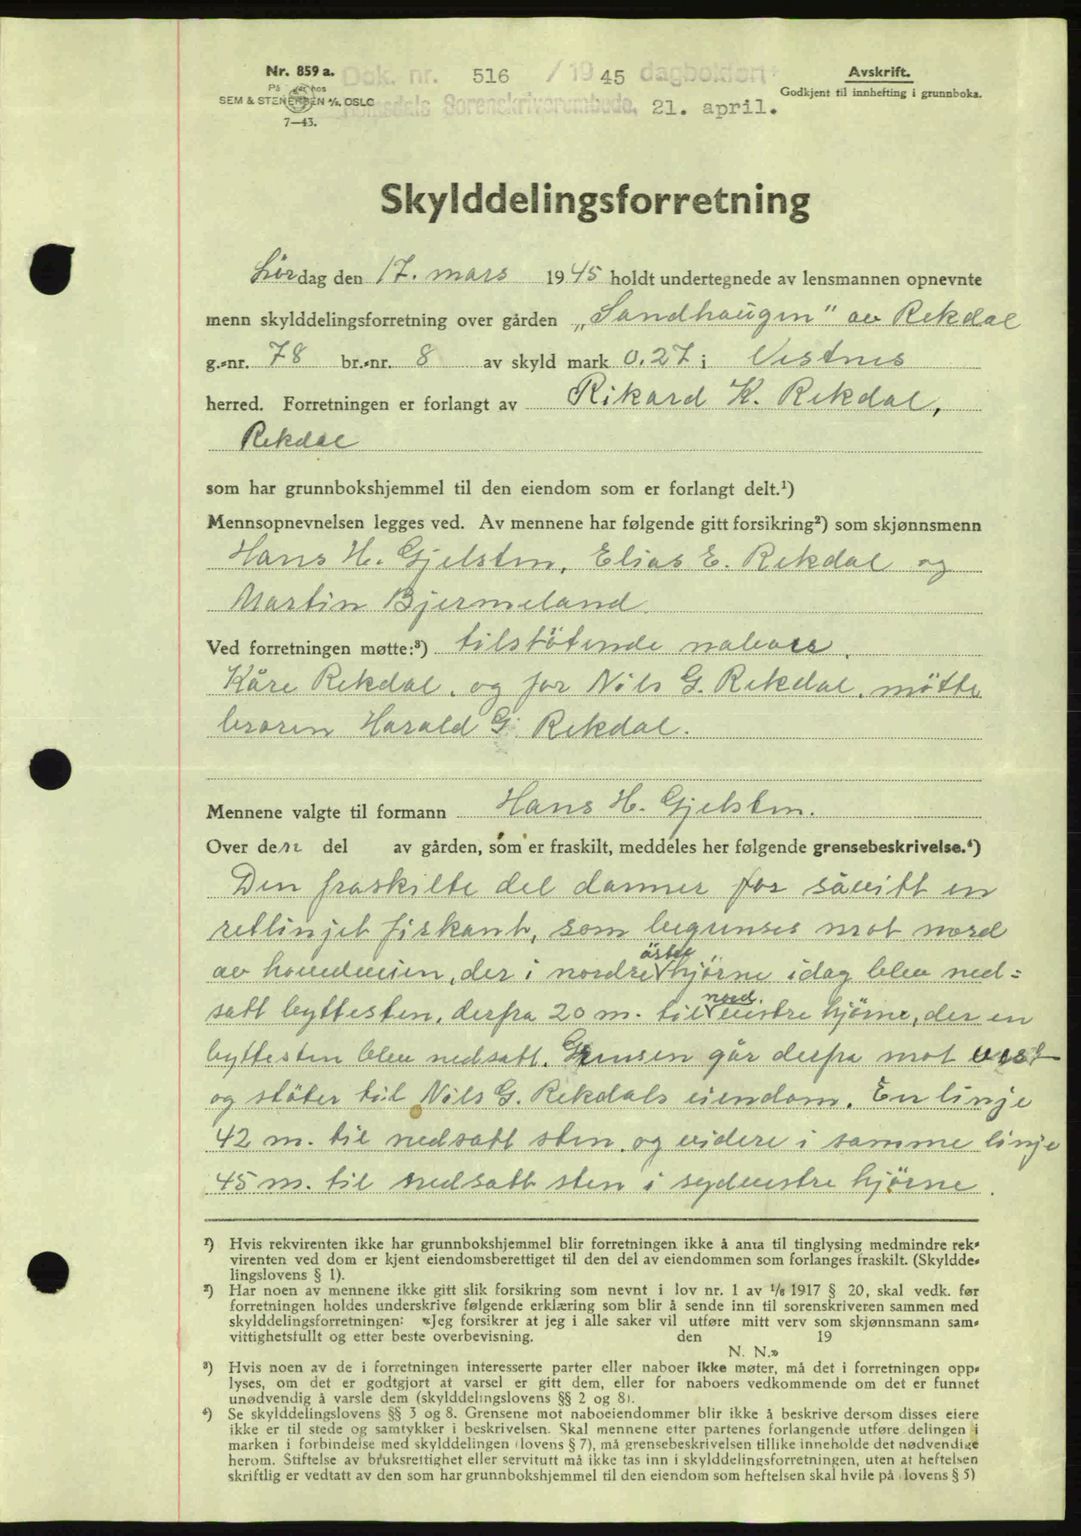 Nr. 859 a.
På lager hos
SEM & STENERSEN A/S, OSLO
7—43.
Dok. nr. 516 / 19 45 dagbokført
Romsdals Sorenskriverembede, 21. april.
Avskrift.
Godkjent til innhefting i grunnboka.
Skylddelingsforretning
Lördag den 17. mars 1945 holdt undertegnede av lensmannen opnevnte
menn skylddelingsforretning over gården „Sandhaugen" av Rekdal
g.-nr. 78 br.-nr. 8 av skyld mark 0.27 i Vestnes
herred. Forretningen er forlangt av Rikard K. Rekdal,
Rekdal
som har grunnbokshjemmel til den eiendom som er forlangt delt.¹)
Mennsopnevnelsen legges ved. Av mennene har følgende gitt forsikring²) som skjønnsmenn
Hans H. Gjelsten, Elias E. Rekdal og
Martin Bjermeland.
Ved forretningen møtte:³) tilstötende naboer.
Kåre Rekdal, og for Nils G. Rekdal, møtte
broren Harald G. Rekdal.
Mennene valgte til formann Hans H. Gjelsten.
Over den del av gården, som er fraskilt, meddeles her følgende grensebeskrivelse.⁴)
Den fraskilte del danner for såvitt en
retlinjet firkant, som begrenses mot nord
østre
av hovedveien, der i nordre hjørne idag blev ned=
nord.
satt byttesten, derfra 20 m. til vestre hjörne, der en
byttesten blev nedsatt. Grensen går derfra mot vest
og stöter til Nils G. Rekdals eiendom. En linje
42 m. til nedsatt sten, og videre i samme linje
45 m. til nedsatt sten i sydvestre hjörne.
¹) Hvis rekvirenten ikke har grunnbokshjemmel blir forretningen ikke å anta til tinglysing medmindre rek-
virenten ved dom er kjent eiendomsberettiget til den del av eiendommen som forlanges fraskilt. (Skyldde-
lingslovens § 1).
²) Har noen av mennene ikke gitt slik forsikring som nevnt i lov nr. 1 av 1/6 1917 § 20, skal vedk. før
forretningen holdes underskrive følgende erklæring som blir å sende inn til sorenskriveren sammen med
skylddelingsforretningen: «Jeg forsikrer at jeg i alle saker vil utføre mitt verv som skjønnsmann sam-
vittighetsfullt og etter beste overbevisning. den 19
N. N.»
³) Hvis noen av de i forretningen interesserte parter eller naboer ikke møter, må det i forretningen opp-
lyses, om det er godtgjort at varsel er gitt dem, eller for naboers vedkommende om det er funnet
unødvendig å varsle dem (skylddelingslovens §§ 2 og 8).
⁴) Se skylddelingslovens §§ 3 og 8. Grensene mot naboeiendommer blir ikke å beskrive dersom disses eiere
ikke er til stede og samtykker i beskrivelsen. Skal mennene etter partenes forlangende utføre delingen i
marken i forbindelse med skylddelingen (lovens § 7), må grensebeskrivelsen tillike inneholde det nødvendige
herom. Stiftelse av bruksrettighet eller servitutt må ikke tas inn i skylddelingsforretningen, uten at heftelsen
skriftlig er vedtatt av den som har grunnbokshjemmel til den eiendom som heftelsen skal hvile på (lovens § 5)